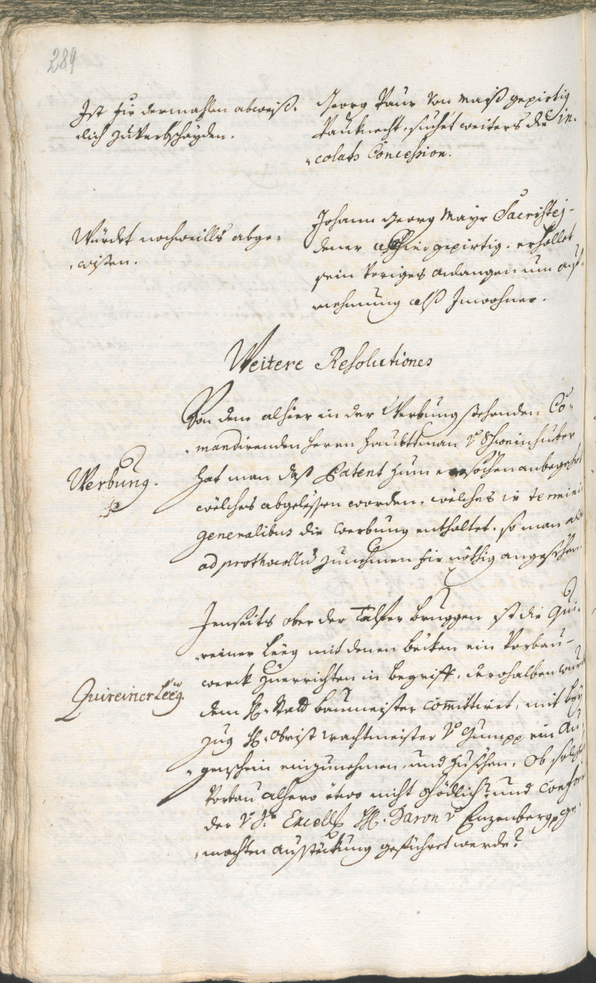 289
Ist für dermahlen abweiß.
lich zu verbscheyden.
Georg Paur von Maiß gepirtig
Paurknecht, suchet weiters die in-
colats Concession.
Würdet nochmeills abge-
wisen.
Johann Georg Mayr Sacristey-
diener alhier gepirtig. erhollet
sein voriges anlangen um auf-
nehmung alß Inwohner.
Weitere Resolutiones
Werbung.
Von dem alhier in der Werbung stehenden Co-
mandirenden Herrn Haubttman v
hat man daß Patent zum ersechen anbegehrt
welches abgelesen worden, welches in terminis
generalibus die werbung enthaltet, so man als
ad prothocollum zunehmen für nöthig angesechen.
Quireiner Leeg
Jenseits ober der Talfer bruggen ist die Qui-
reiner Leeg mit denen böcken ein Vorbau-
werck zuerrichten in begriff, derohalben würd
dem H. Stadt baumeister committiret, mit bey
zug H. Obrist wachtmeister v Gumpp ein Au-
genschein einzunehmen, und zusechen, ob solcher
Vorbau alhero etwo nicht schödlich, und confor
der v Sr. Excell. H. Baron v Enzenberg ge-
machten aussteckung geführet werde?